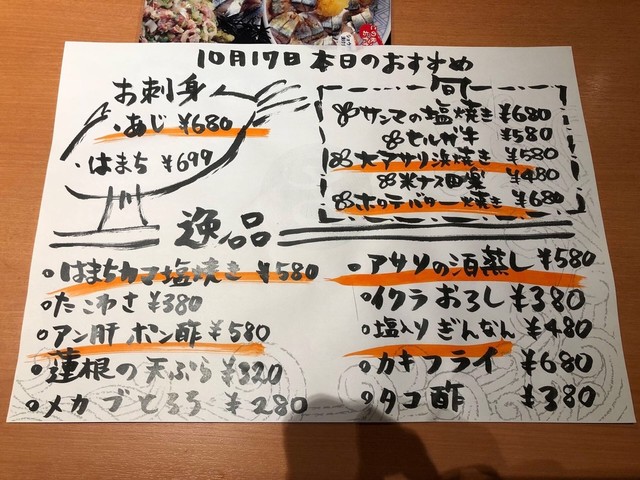 10月17日本日のおすすめ
お刺身
・あじ ¥680
・はまち ¥699
旬
サンマの塩焼き ¥680
セルガキ ¥580
大アサリ浜焼き ¥580
米ナス田楽 ¥480
ホタテバター焼き ¥680
逸品
はまちカマ塩焼き ¥580
たこわさ ¥380
アン肝ポン酢 ¥580
蓮根の天ぷら ¥320
メカブとろろ ¥280
アサリの酒蒸し ¥580
イクラおろし ¥380
塩入りぎんなん ¥480
カキフライ ¥680
タコ酢 ¥380